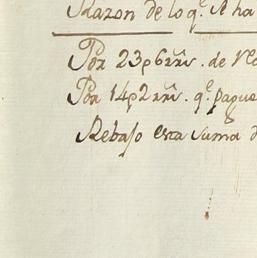 Razon de lo q.e A ha
Por 23p6rrs. de Vl
Por 14p2rrs. q.e pague
Rebajo esta suma d